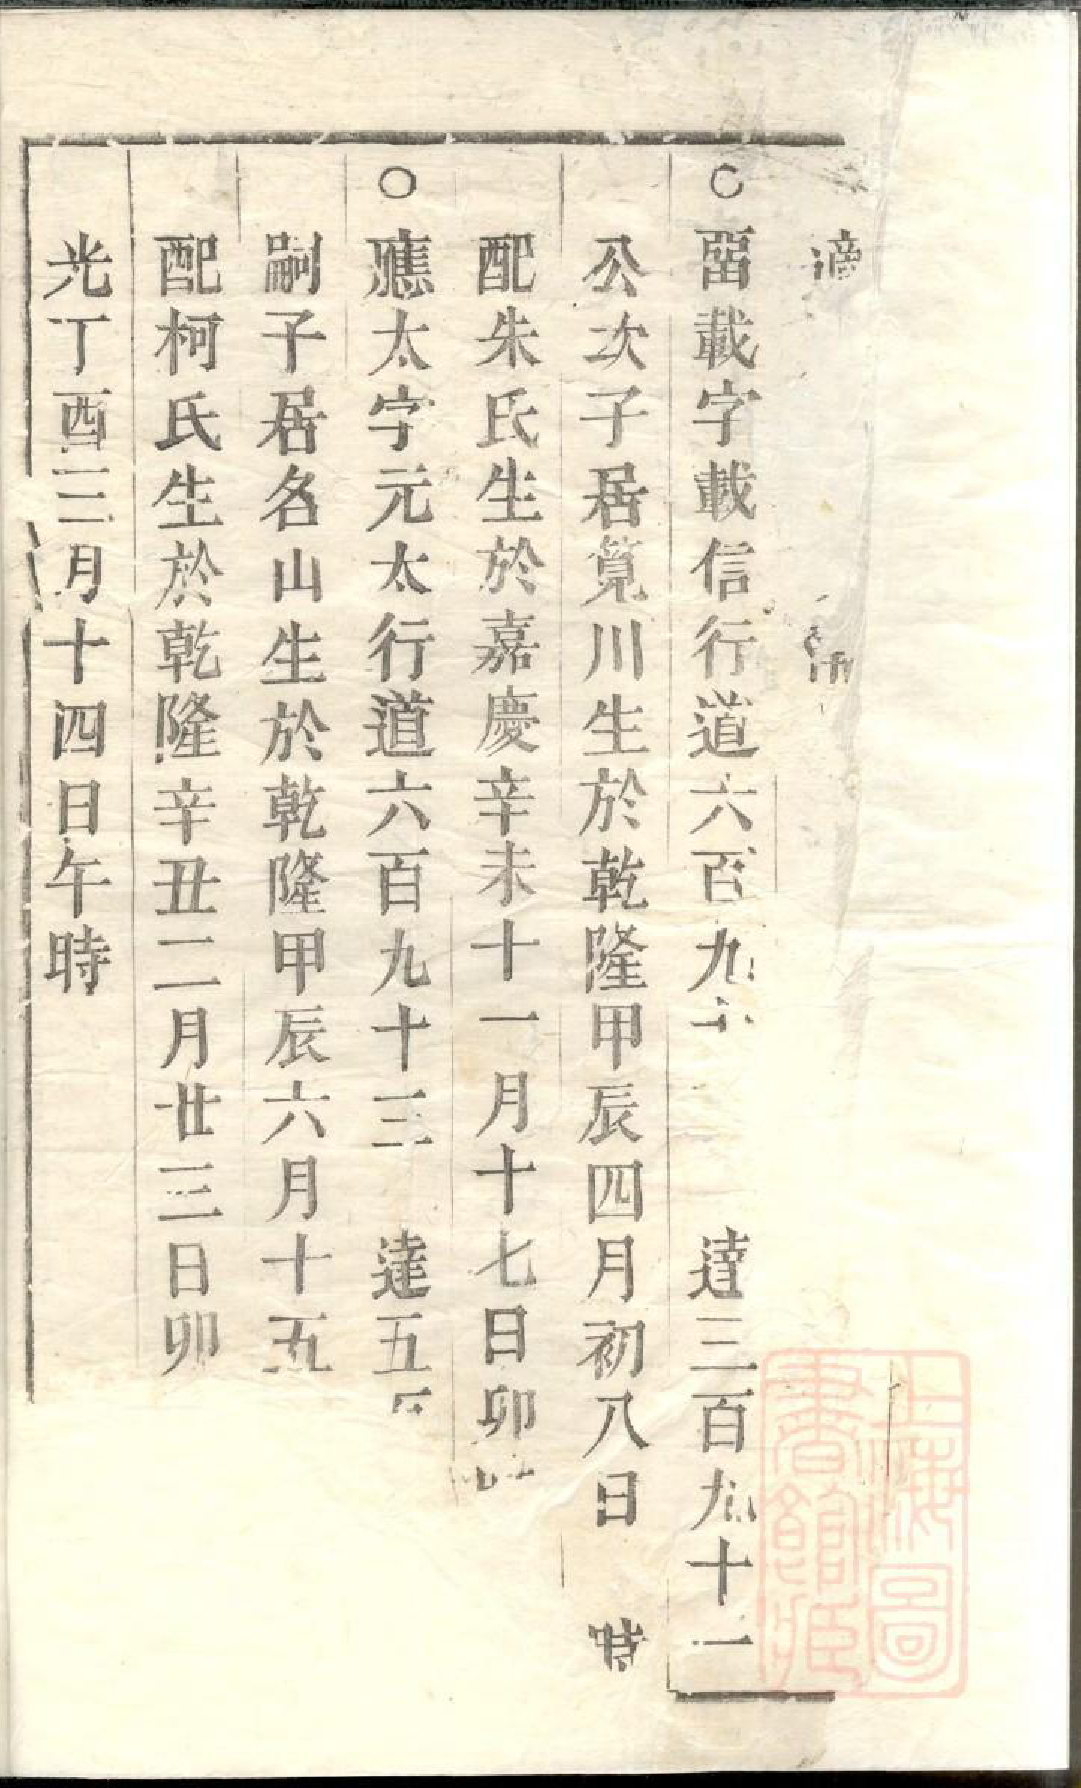 適
○䍃載字載信行道六百九十 達三百九十一
公次子居筧川生於乾隆甲辰四月初八日 時
配朱氏生於嘉慶辛未十一月十七日卯
○應太字元太行道六百九十三 達五
嗣子居名山生於乾隆甲辰六月十五
配柯氏生於乾隆辛丑二月廿三日卯
光丁酉三月十四日午時
上海圖書館藏